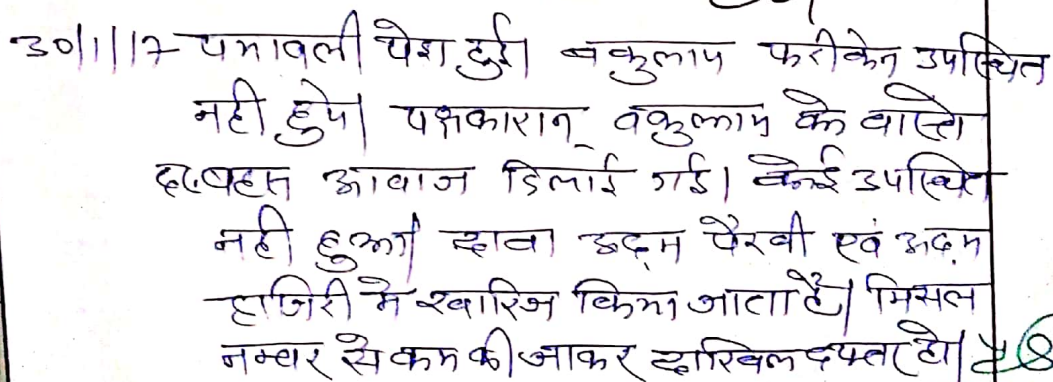 30/1/17 पत्रावली पेश हुई। वकुलाय फरीकेन उपस्थित
नही हुये। पक्षकारान् वकुलाय के वास्ते
दर.बहस आवाज दिलाई गई। कोई उपस्थित
नही हुआ। दावा अदम पैरवी एवं अदम
हाजिरी मे खारिज किया जाता है। मिसल
नम्बर से कम की जाकर दाखिल दफ्तर हो।